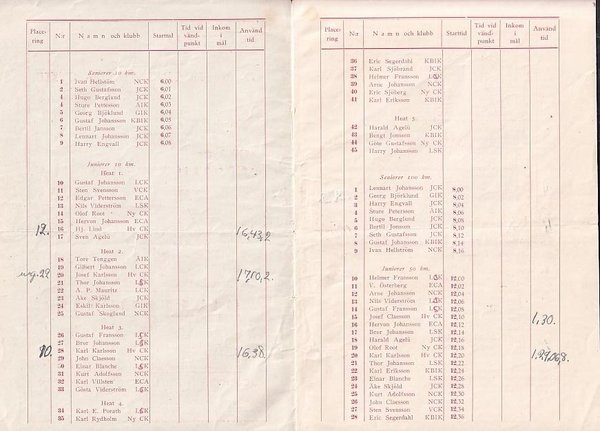 Placering N:r Namn och klubb Starttid Tid vid vändpunkt Inkom i mål Använd tid
Seniorer 10 km.
1 Ivan Hellström NCK 6,00
2 Seth Gustafsson JCK 6,01
3 Hugo Berglund JCK 6,02
4 Sture Pettersson AIK 6,03
5 Georg Björklund GIK 6,04
6 Gustaf Johansson KBIK 6,05
7 Bertil Jansson JCK 6,06
8 Lennart Johansson JCK 6,07
9 Harry Engvall JCK 6,08
Juniorer 10 km.
Heat 1.
10 Gustaf Johansson LCK
11 Sten Svensson VCK
12 Edgar Pettersson ECA
13 Nils Viderström LSK
14 Olof Root Ny CK
15 Hervon Johansson ECA
12. 16 Hj. Lind Hv CK 16,43,2
17 Sven Agelü JCK
Heat 2.
18 Tore Tenggen ÄIK
19 Gilbert Johansson LCK
20 Josef Karlsson Hv CK 17,0,2
21 Thor Johansson LSK
22 A. P. Mauritz LCK
23 Åke Sköjld JCK
24 Eskil Karlsson GIK
25 Gustaf Skoglund NCK
Heat 3.
26 Gustav Fransson LCK
27 Bror Johansson LSK
10. 28 Karl Karlsson Hv CK 16,38
29 John Claeson NCK
30 Einar Blanche LSK
31 Kurt Adolfsson NCK
32 Karl Villsten ECA
33 Gösta Viderström LSK
Heat 4.
34 Karl E. Porath LSK
35 Karl Rydholm Ny CK
Placering N:r Namn och klubb Starttid Tid vid vändpunkt Inkom i mål Använd tid
36 Eric Segerdahl KBIK
37 Karl Sjöbrand JCK
38 Helmer Fransson LSK
39 Arne Johansson NCK
40 Eric Sjöberg Ny CK
41 Karl Eriksson KBIK
Heat 5.
42 Harald Agelü JCK
43 Bengt Jonsson KBIK
44 Göte Gustafsson Ny CK
45 Harry Johansson LSK
Seniorer 100 km.
1 Lennart Johansson JCK 8,00
2 Georg Björklund GIK 8,02
3 Harry Engvall JCK 8,04
4 Sture Petersson AIK 8,06
5 Hugo Berglund JCK 8,08
6 Bertil Jonson JCK 8,10
7 Seth Gustafsson JCK 8,12
8 Gustaf Johansson KBIK 8,14
9 Ivan Hellström NCK 8,16
Juniorer 50 km.
10 Helmer Fransson LSK 12,00
11 V. Österberg ECA 12,02
12 Arne Johansson NCK 12,04
13 Nils Viderström LSK 12,06
14 Gustav Fransson LCK 12,08
15 Josef Claesson Hv CK 12,10 1,30.
16 Hervon Johansson ECA 12,12
17 Bror Johansson LSK 12,14
18 Harald Agelü JCK 12,16
19 Olof Root Ny CK 12,18
20 Karl Karlsson Hv CK 12,20
21 Thor Johansson LSK 12,22
22 Karl Eriksson KBIK 12,24
23 Einar Blanche LSK 12,26
24 Åke Sköjld JCK 12,28
25 Kurt Adolfsson NCK 12,30
26 John Claesson NCK 12,32
27 Sten Svensson VCK 12,34
28 Eric Segerdahl KBIK 12,36